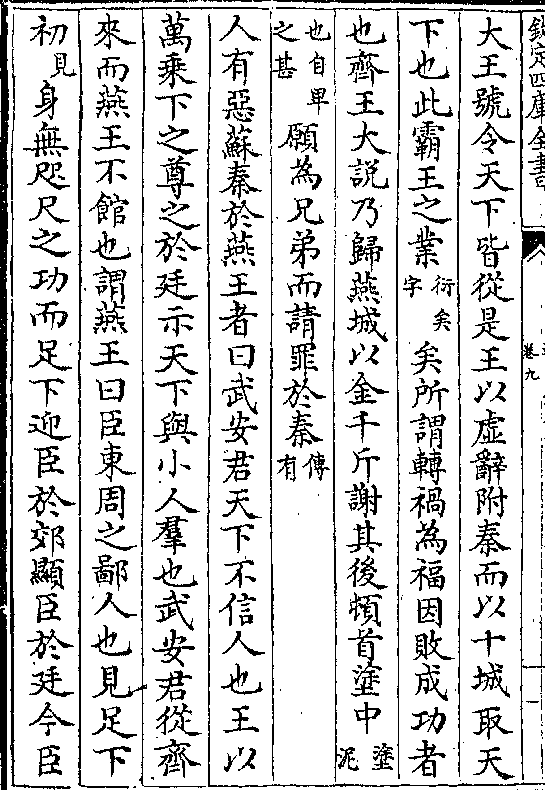 欽定四庫全書
卷九
大王號令天下皆從是王以虛辭附秦而以十城取天
下也此霸王之業衍矣字矣所謂轉禍為福因敗成功者
也齊王大説乃歸燕城以金千斤謝其後頓首塗中塗泥
也自卑之甚願為兄弟而請罪於秦傳有
人有惡蘇秦於燕王者曰武安君天下不信人也王以
萬乗下之尊之於廷示天下與小人羣也武安君從齊
來而燕王不館也謂燕王曰臣東周之鄙人也見足下
初見身無咫尺之功而足下迎臣於郊顯臣於廷今臣